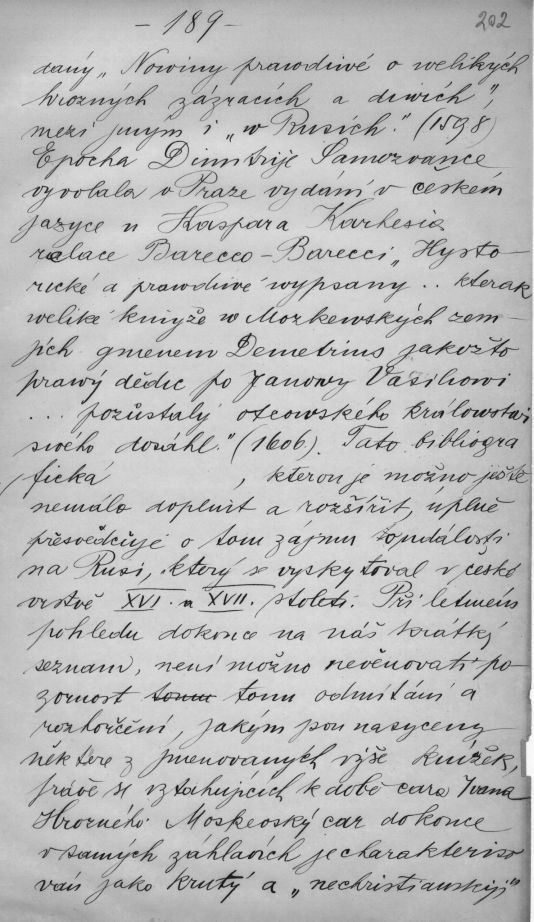 - 189 -
202
daný „Nowiny prawdiwé o welikých
hrozných zázracích a diwích",
mezi jiným i „w Rusích." (1598)
Epocha Dimitrije Samozvance
vyvolala v Praze vydání v českém
jazyce u Kaspara Karhesia
relace Barecco-Barecci „Hysto-
rické a prawdiwé wypsany .. kterak
weliké knijže w Mozkewských zem-
jích gmenem Demetrius jakožto
prawý dědic po Janowy Vasilowi
... pozůstalý otcowského králowstwi
swého dosáhl." (1606). Tato bibliogra
fická , kterou je možno ještě
nemálo doplnit a rozšířit, úplně
přesvědčuje o tom zájmu o události
na Rusi, který se vyskytoval v české
vrstvě XVI. a XVII. století. Při letmém
pohledu dokonce na náš krátký
seznam, není možno nevěnovati po-
zornost tomu tomu odmítání a
roztorčení, jakým jsou nasyceny
některé z jmenovaných výše knížek,
právě se vztahujících k době cara Ivana
Hrozného. Moskevský car dokonce
v samých záhlavích je charakteriso
ván jako krutý a „nechristianskiji"